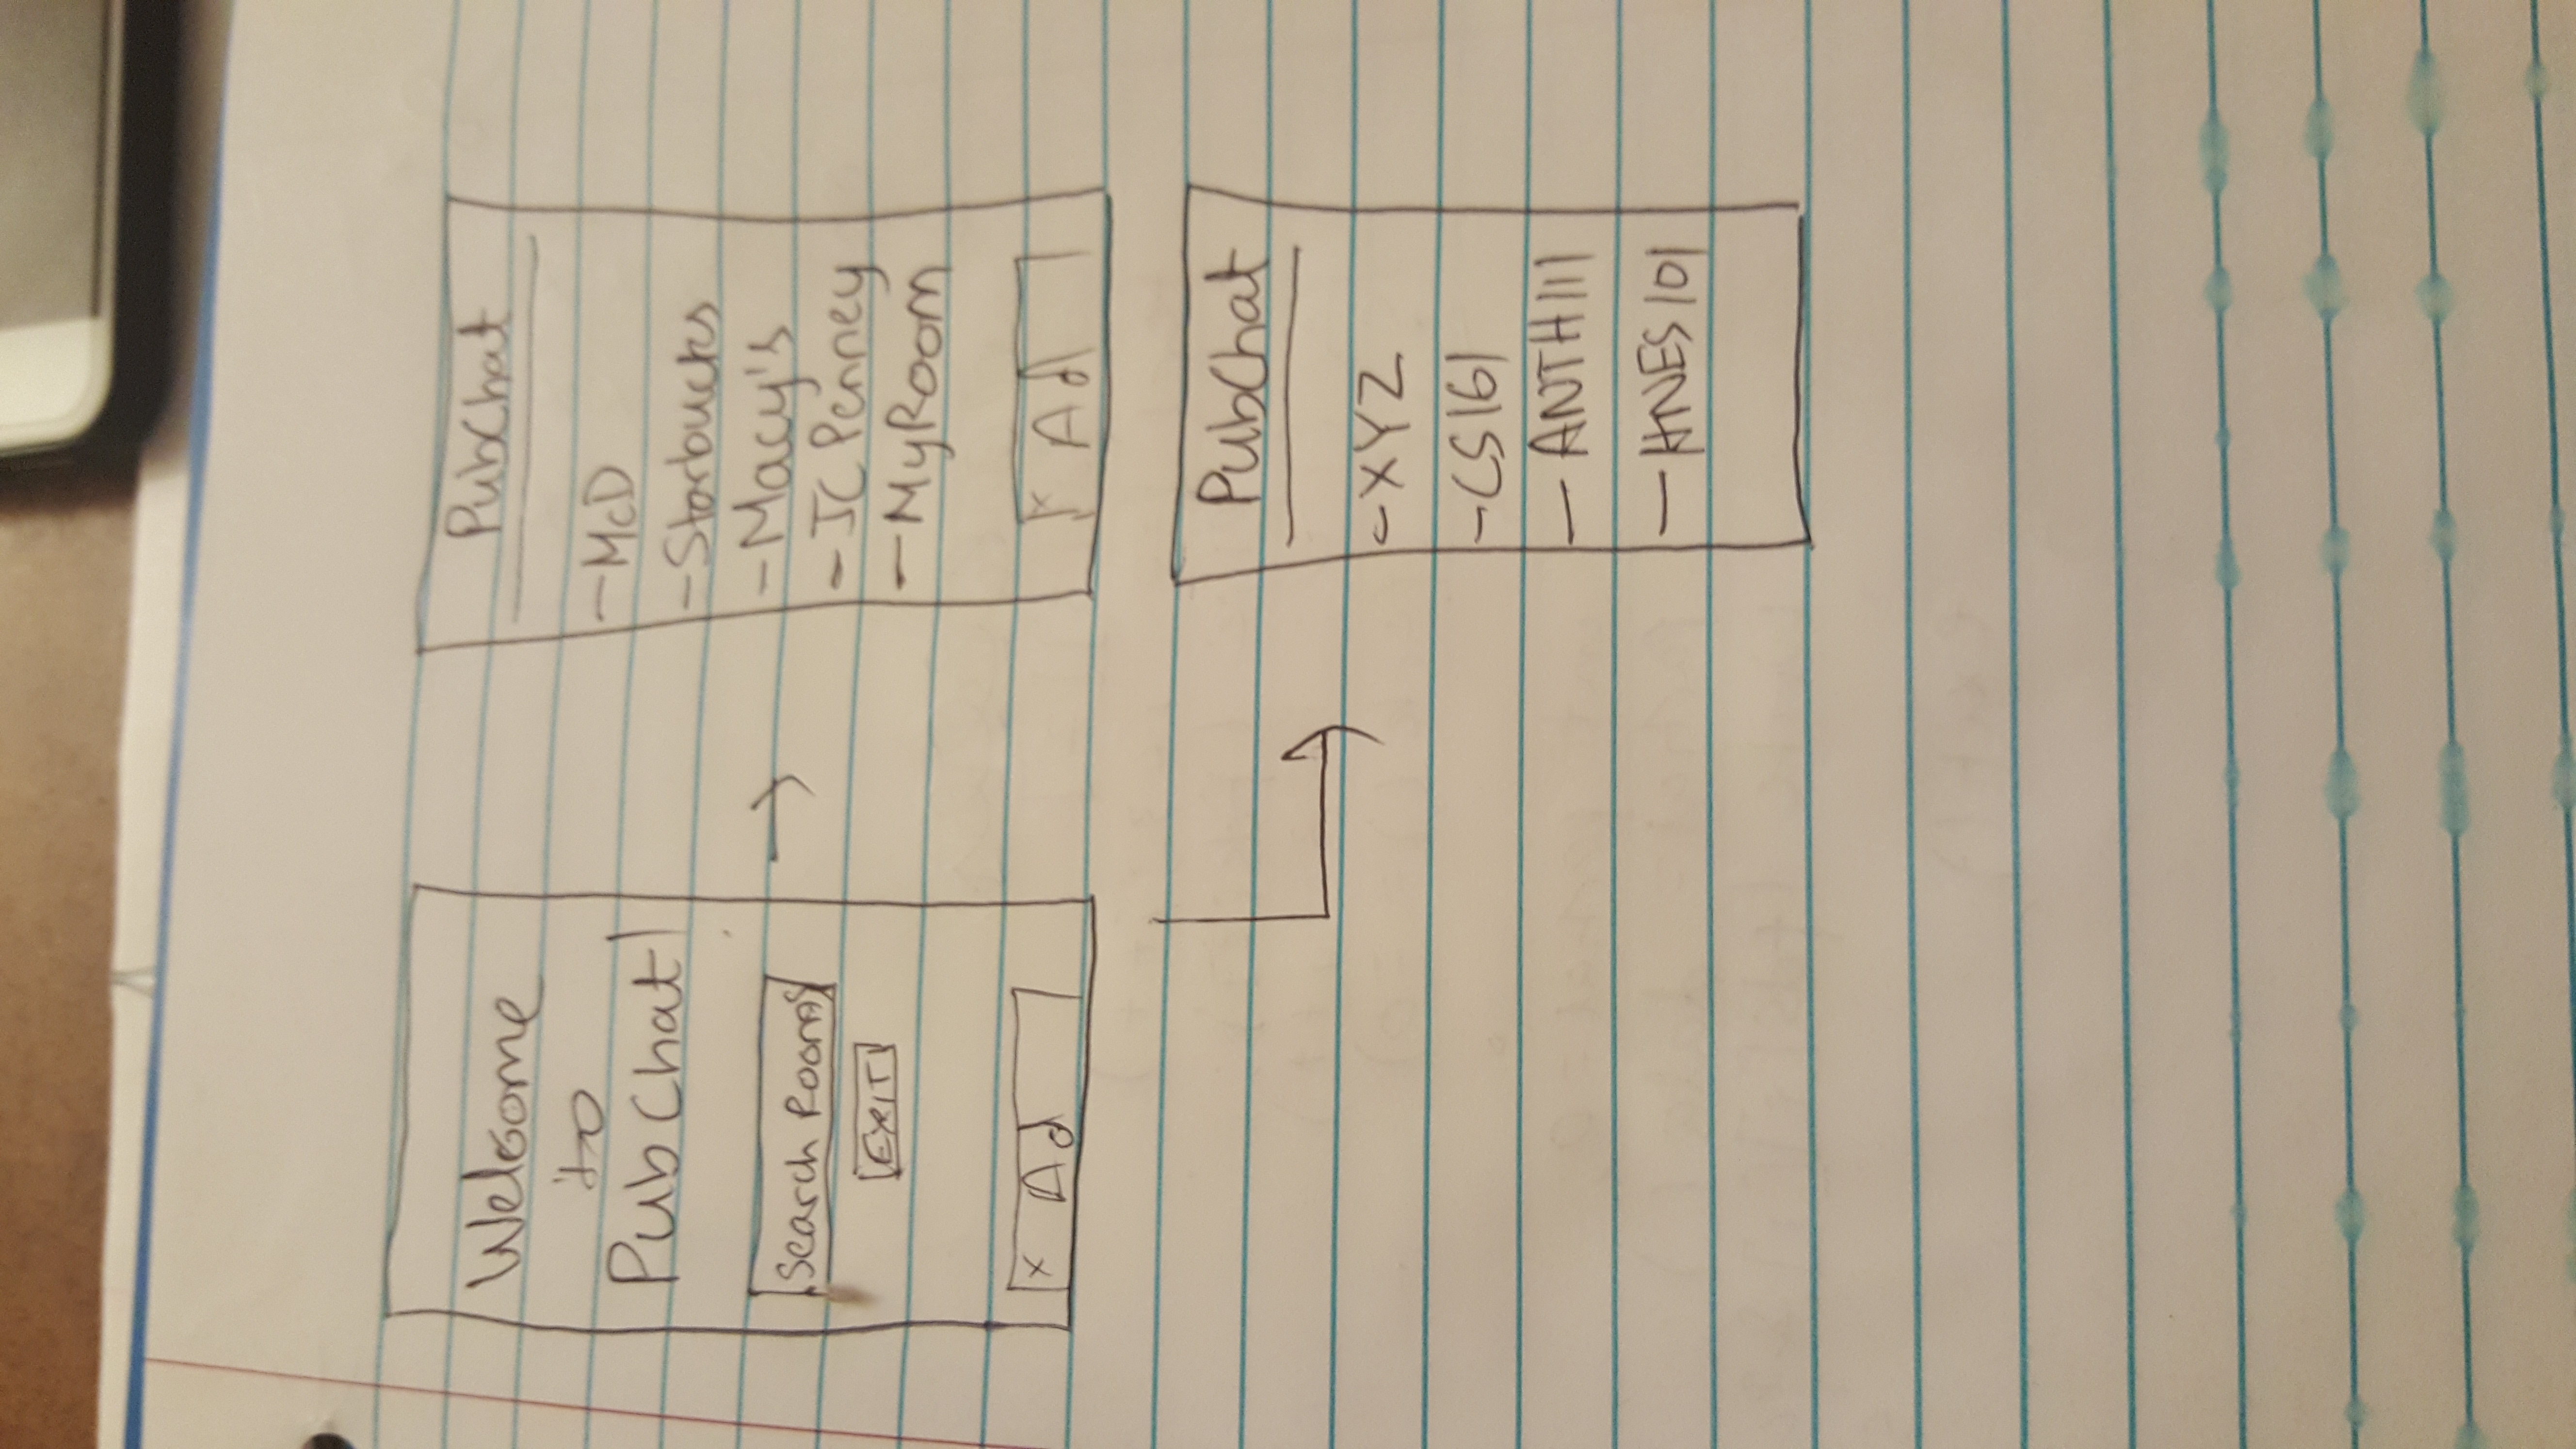 Welcome
to
PubChat!
Search Rooms
EXIT
x Ad
PubChat
- McD
- Starbucks
- Macy's
- JC Penney
- MyRoom
x Ad
PubChat
- XYZ
- CS161
- ANTH111
- HNES101